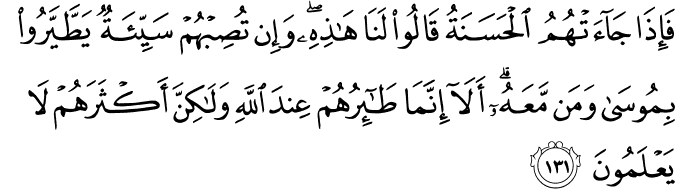 فَإِذَا جَآءَتْهُمُ ٱلْحَسَنَةُ قَالُوا۟ لَنَا هَـٰذِهِۦ ۖ وَإِن تُصِبْهُمْ سَيِّئَةٌ يَطَّيَّرُوا۟
بِمُوسَىٰ وَمَن مَّعَهُۥٓ ۗ أَلَآ إِنَّمَا طَـٰٓئِرُهُمْ عِندَ ٱللَّهِ وَلَـٰكِنَّ أَكْثَرَهُمْ لَا
يَعْلَمُونَ ١٣١